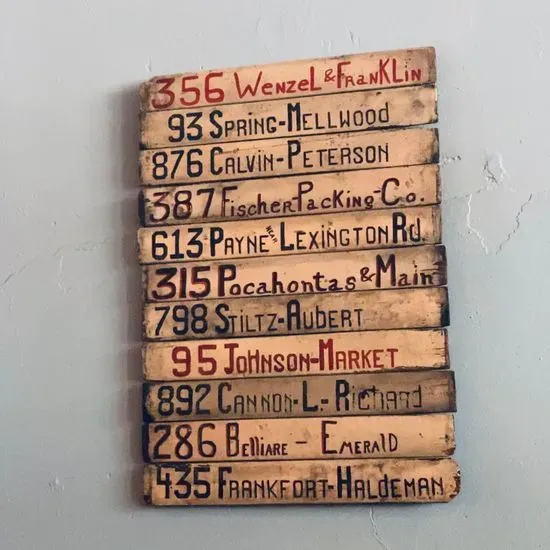 356 WENZEL & FRANKLin
93 SPRING-MELLWOOD
876 CALVIN-PETERSON
387 FischerPacKing-Co.
613 PAYNE NEAR LEXINGTON Rd
315 Pocahontas & Main
798 STILTZ-AUBERT
95 JOHNSON-MARKET
892 CANNON-L.-Richard
286 BELLIARE - EMERALD
435 FRANKFORT-HALDEMAN